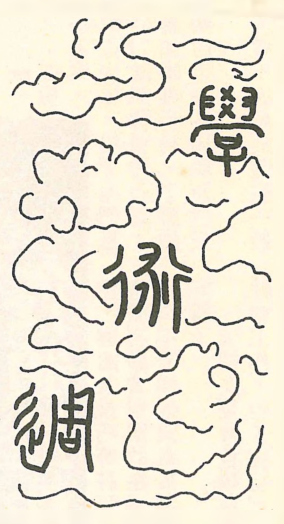 學
術
週